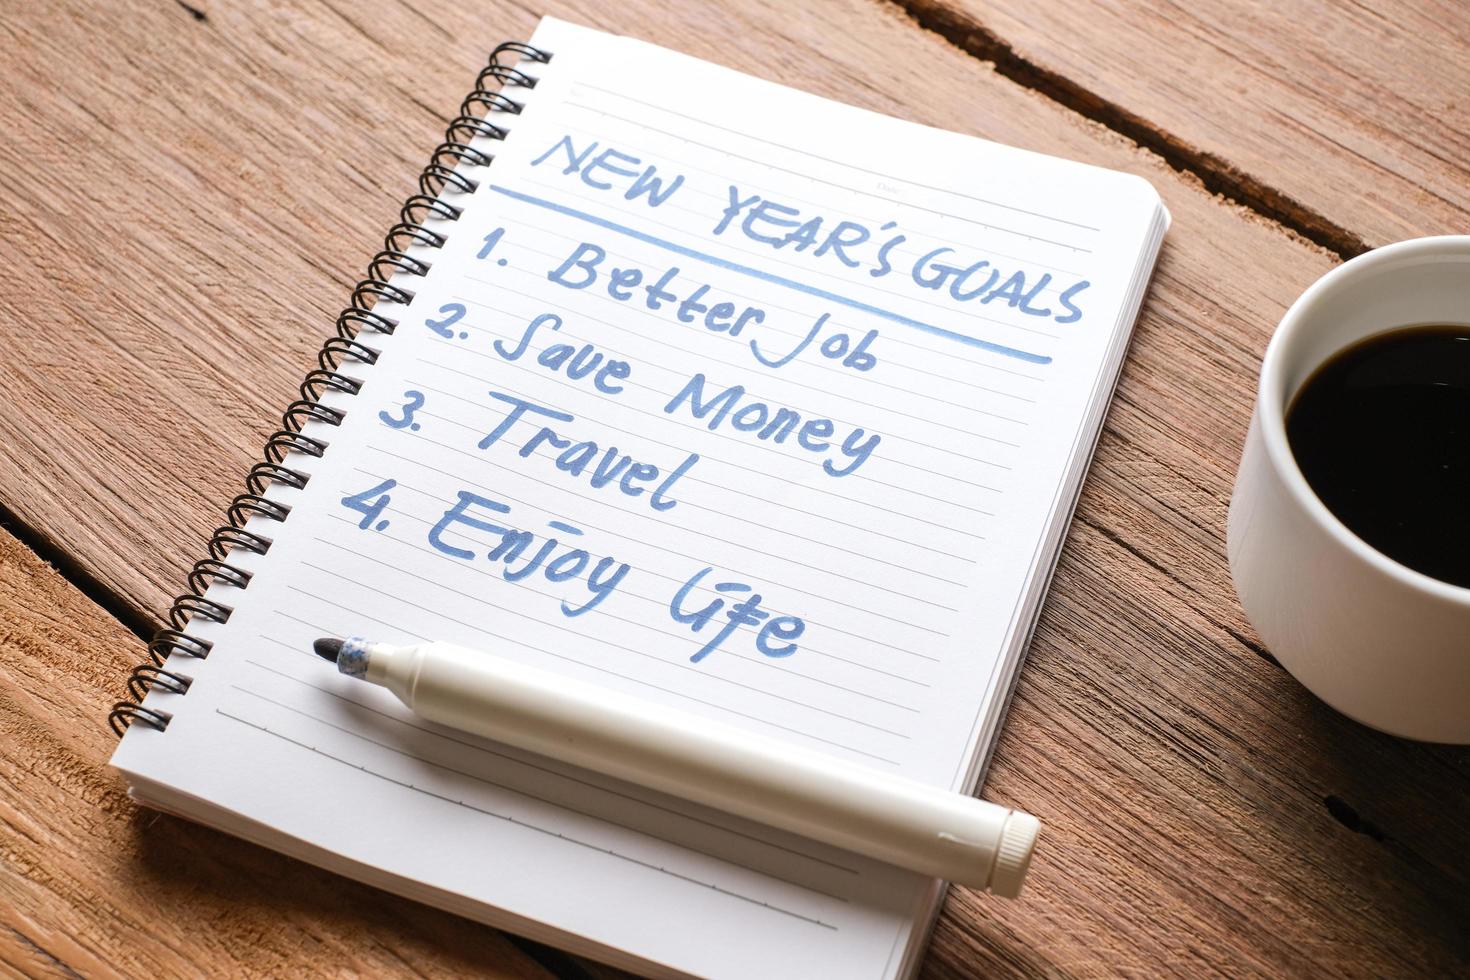 Date:
NEW YEAR'S GOALS
1. Better Job
2. Save Money
3. Travel
4. Enjoy Life